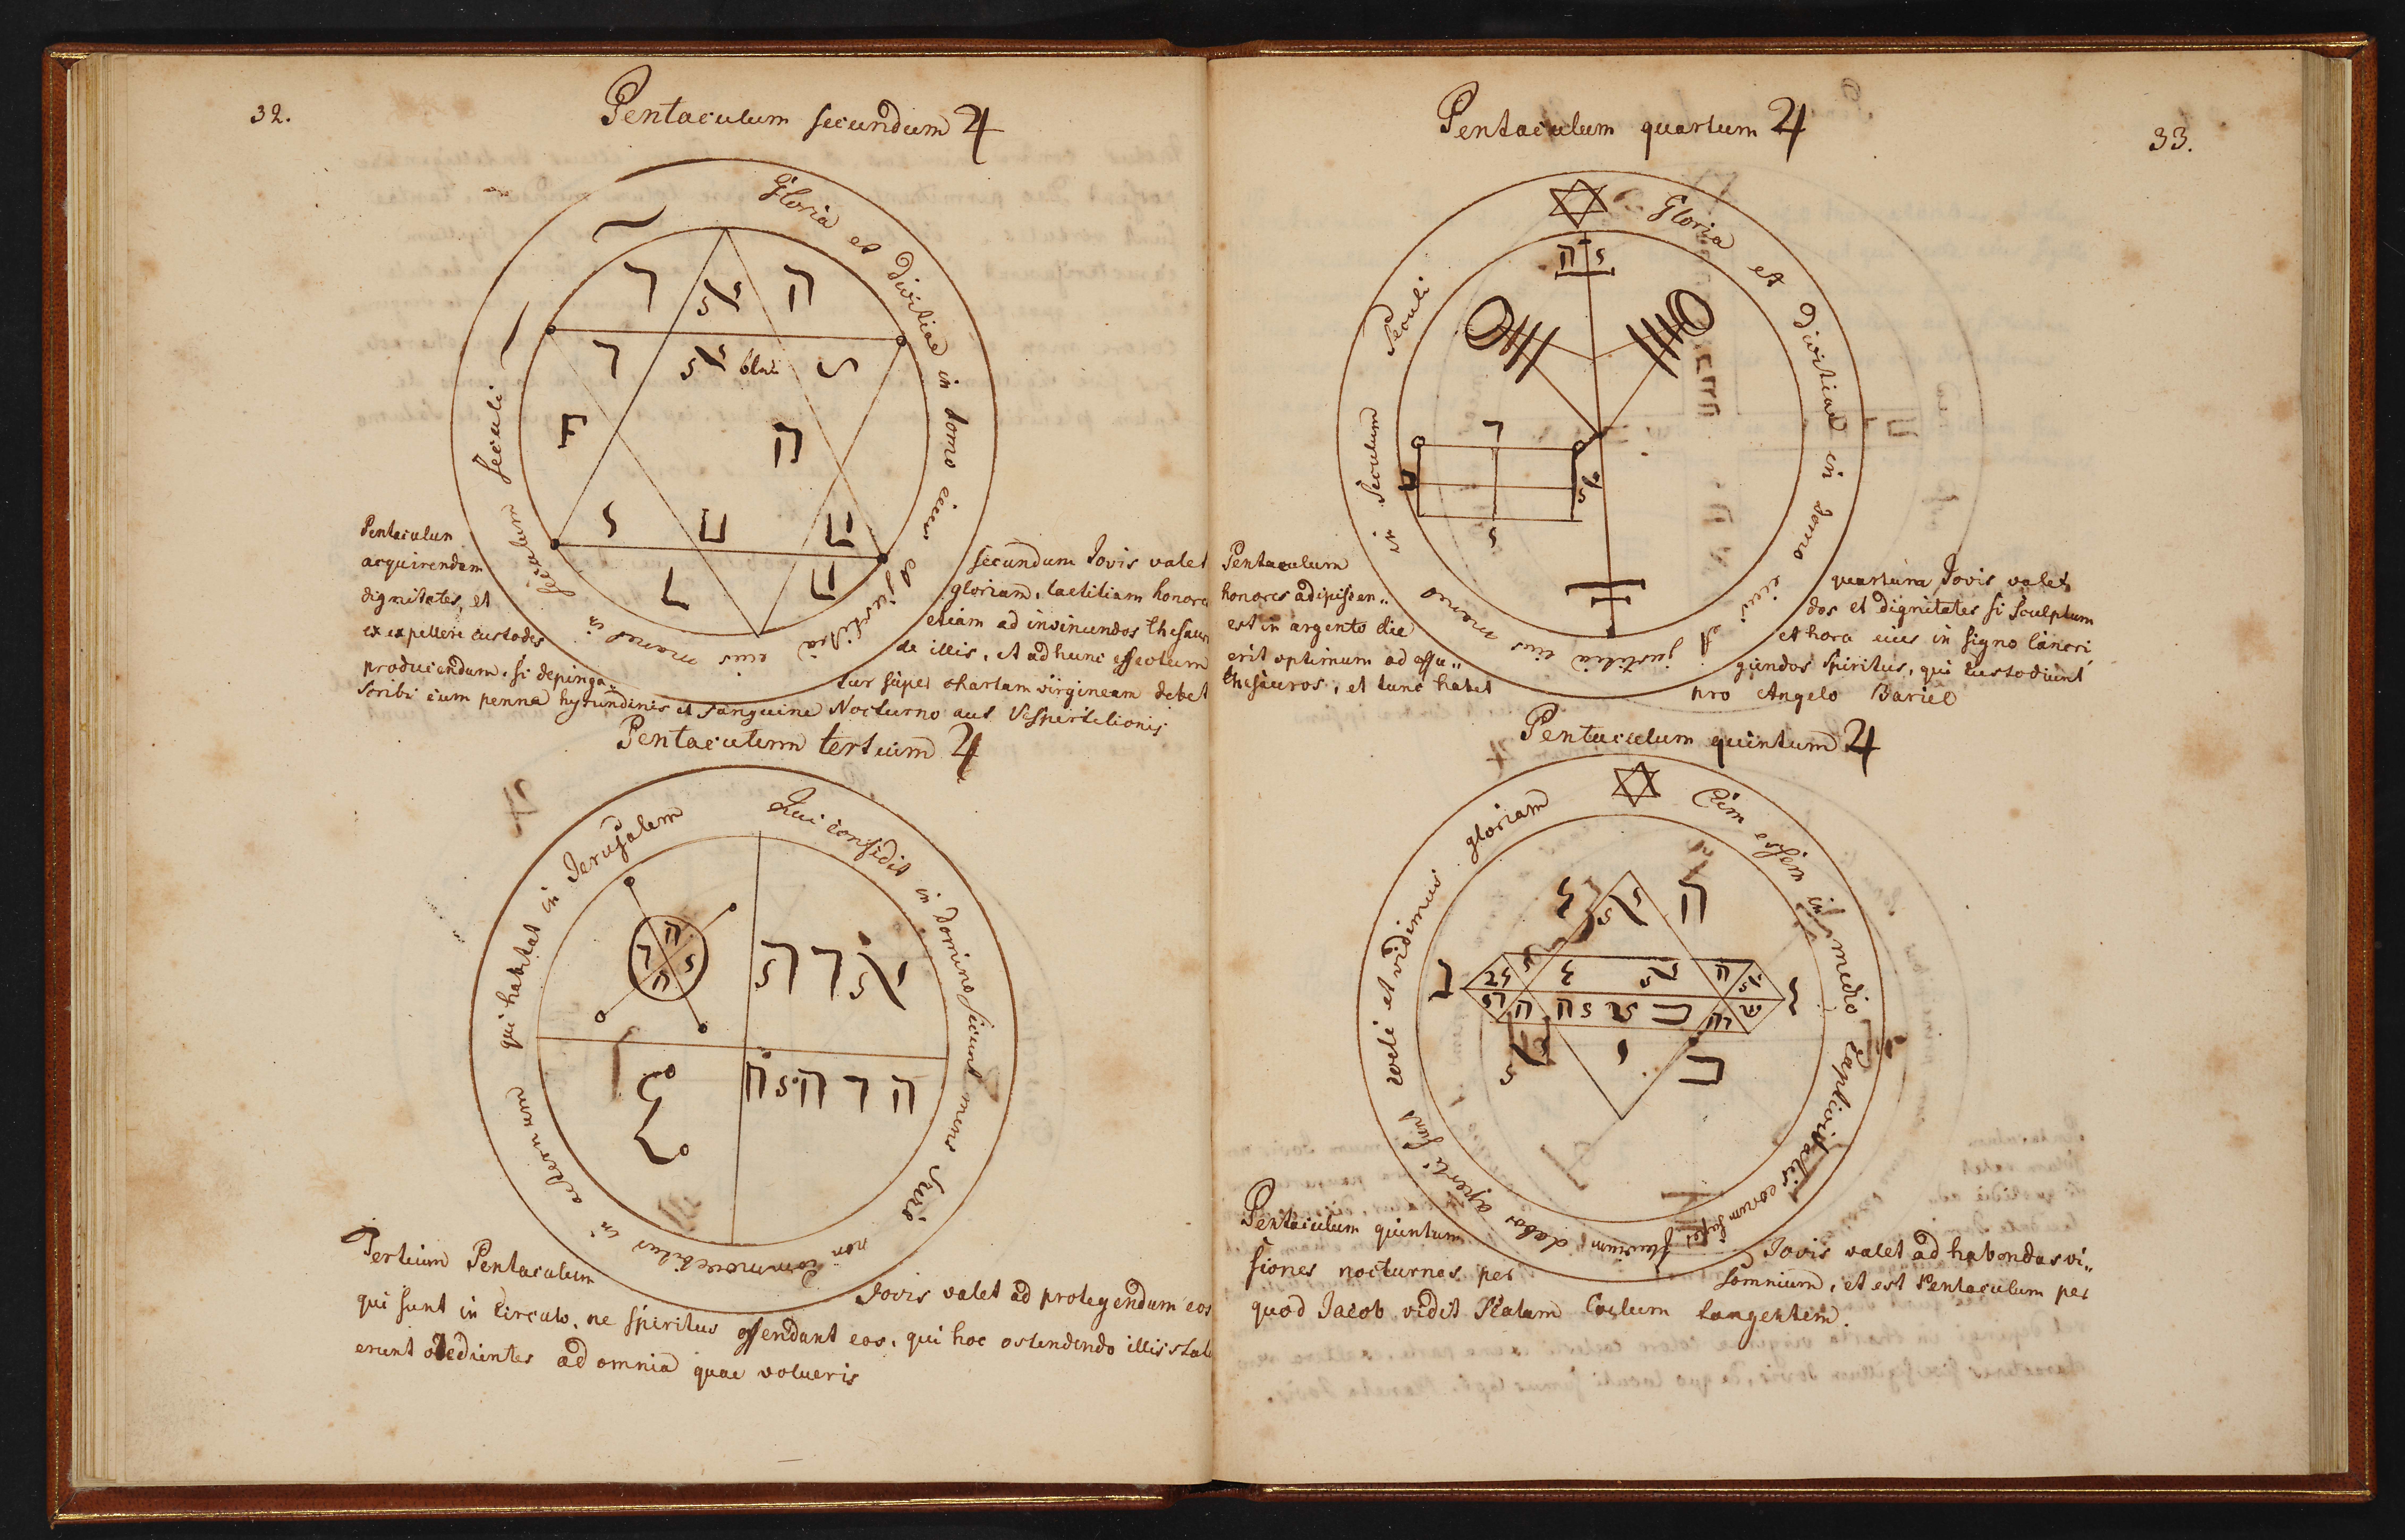 32.
Pentaculum secundum ♃
Gloria et Divitiae in domo eius et justitia eius manet in seculum seculi
ר ה
ר
ה
Pentaculum secundum Jovis valet
acquirendam gloriam, laetitiam honores
dignitates, et etiam ad invinundos thesaur
ex expellere custodes de illis, et ad hunc effectum
producendum, si depinga„ tur super chartam virgineam debet
scribi cum penna hyrundinis et sanguine Nocturno aut Vespertilionis
Pentaculum tertium ♃
Qui confidit in Domino sicunt mons Sion non commovebitur in aeternum qui habitat in Jerusalem
Tertium Pentaculum Jovis valet ad protegendum eos
qui sunt in Circulo, ne spiritus offendant eos, qui hoc ostendendo illis stat
erunt obedientes ad omnia quae volueris
33.
Pentaculum quartum ♃
Gloria et Divitiae in domo eius et justitia eius manet in Seculum Seculi
Pentaculum quartum Jovis valet
honores adipiscen„ dos et dignitates si Sculptum
est in argento die et hora eius in signo Cancri
erit optimum ad effu„ gundos Spiritus, qui Custodiunt
thesauros, et tunc habet pro Angelo Bariel
Pentaculum quintum ♃
Cum essem in medio Captivitatis eorum super flumium dabor aperti sunt coeli et vidimus gloriam
Pentaculum quintum Jovis valet ad habendas vi„
siones nocturnas per somnium, et est Pentaculum per
quod Jacob vidit Scalam Coelum tangentem.